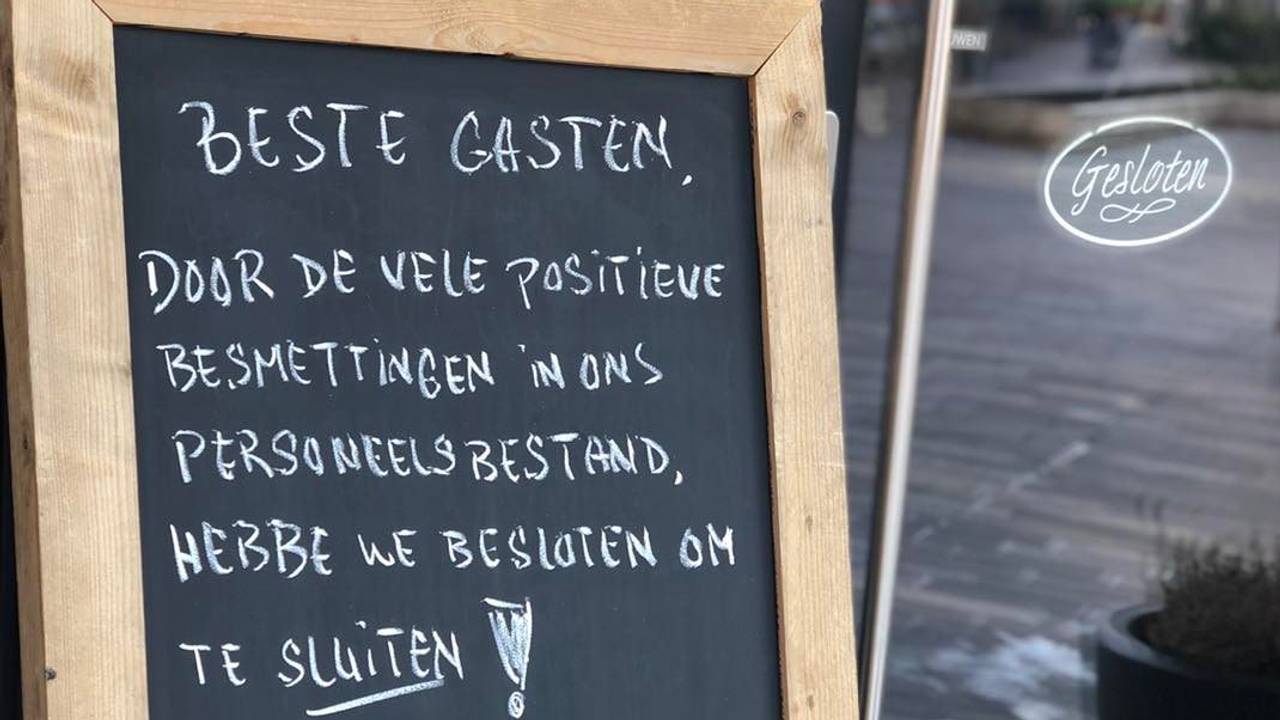 BESTE GASTEN,
DOOR DE VELE POSITIEVE
BESMETTINGEN IN ONS
PERSONEELSBESTAND,
HEBBE WE BESLOTEN OM
TE SLUITEN !
Gesloten